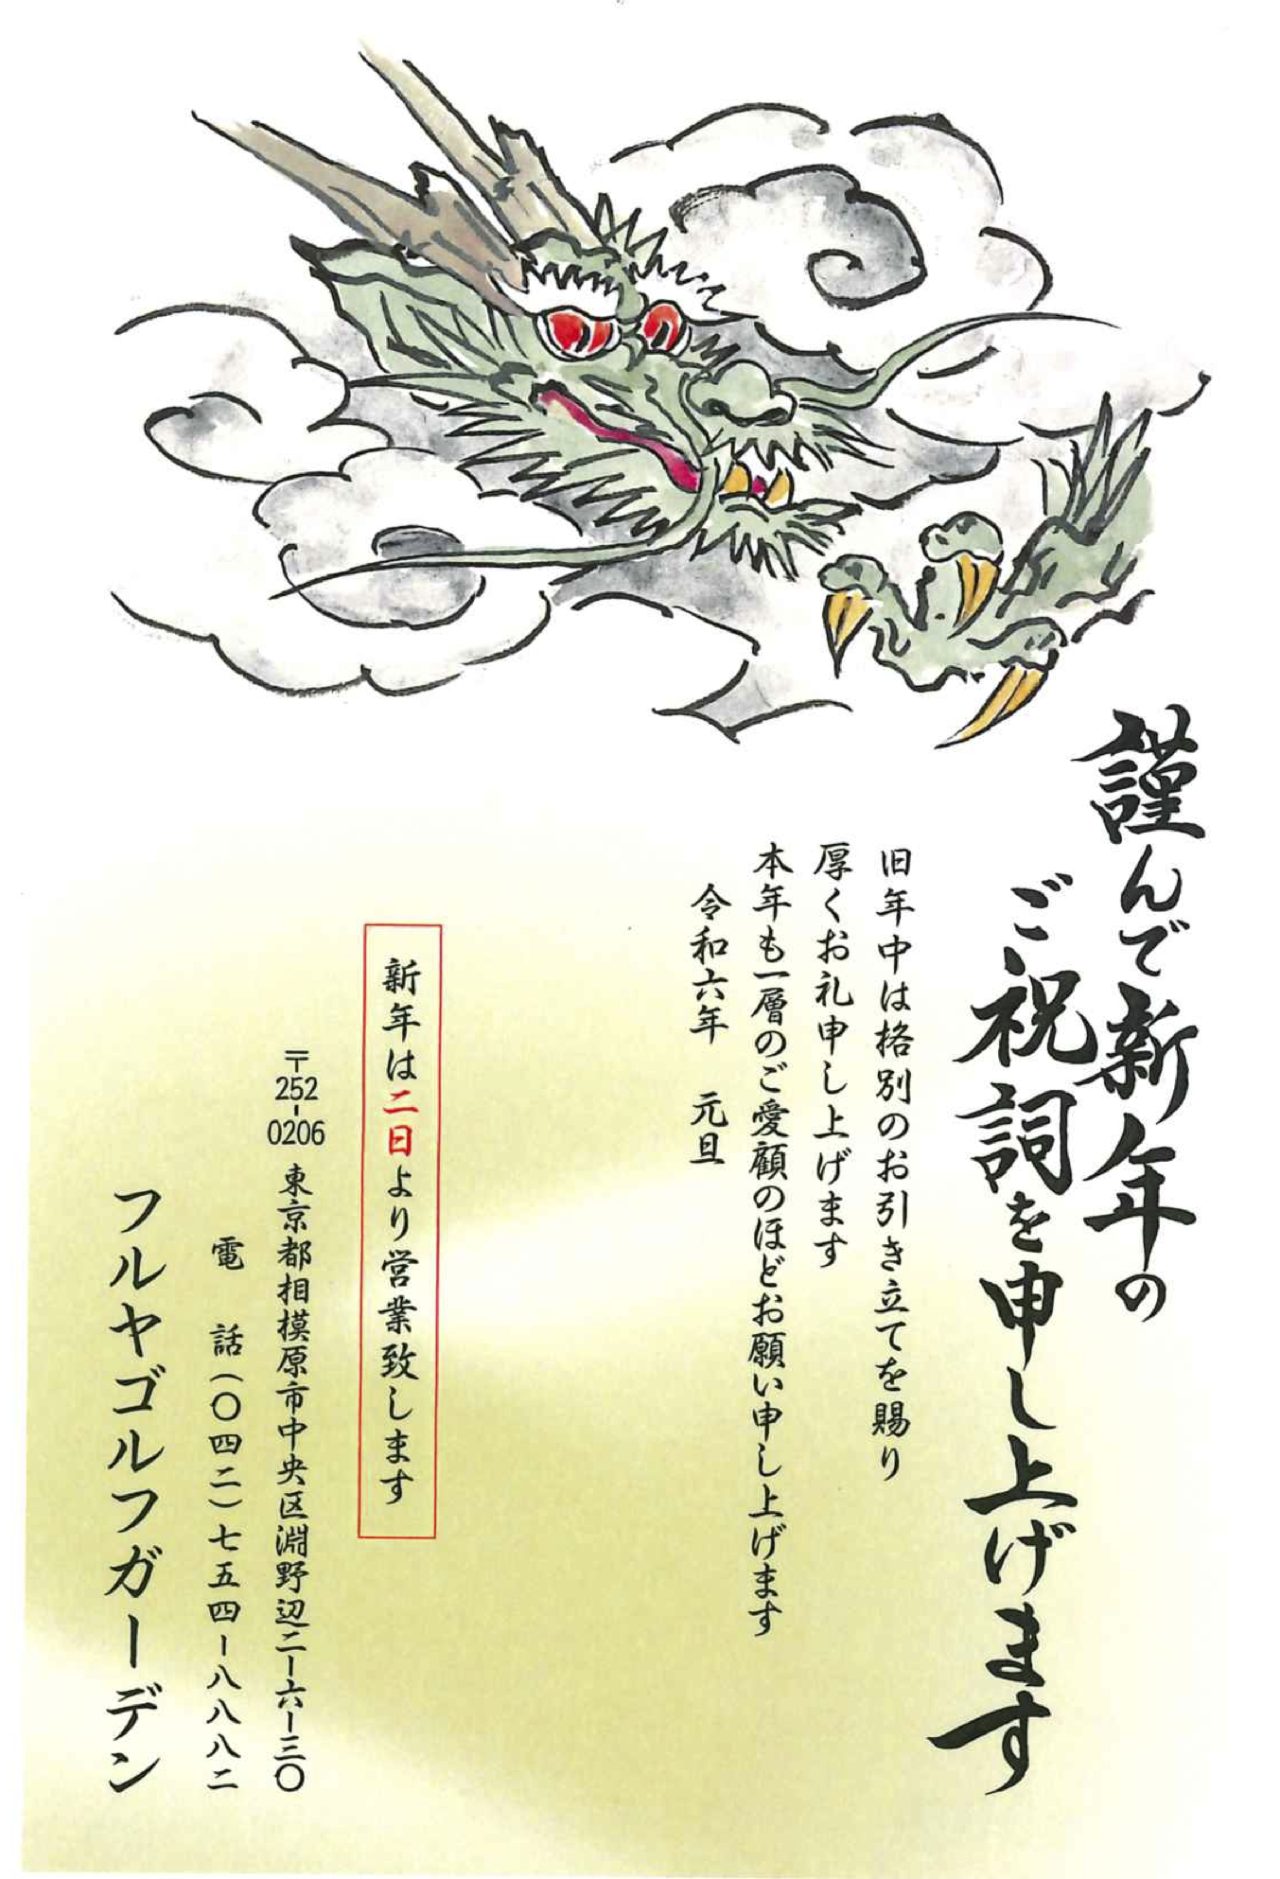 謹んで新年の
ご祝詞を申し上げます
旧年中は格別のお引き立てを賜り
厚くお礼申し上げます
本年も一層のご愛顧のほどお願い申し上げます
令和六年　元旦
新年は二日より営業致します
〒252-0206　東京都相模原市中央区淵野辺二ー六ー三〇
電　話（〇四二）七五四ー八八八二
フルヤゴルフガーデン